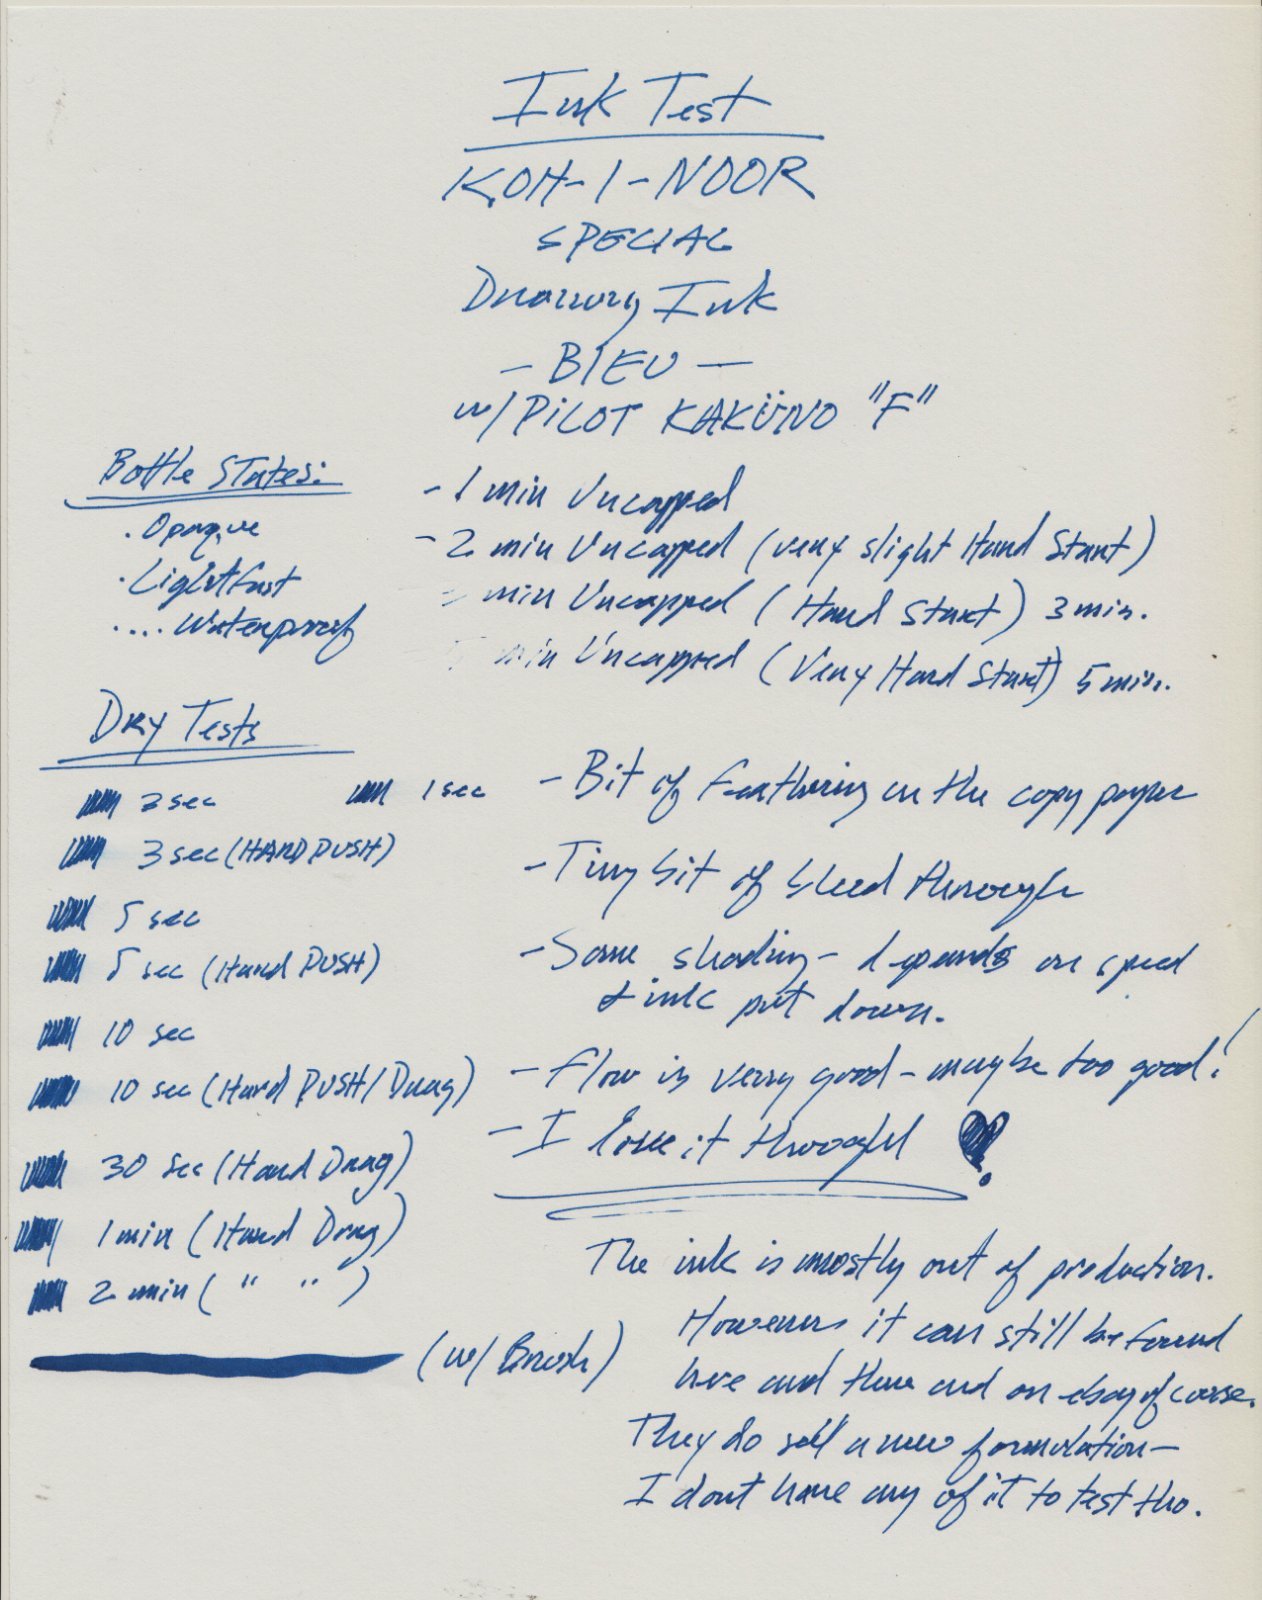 Ink Test
KOH-I-NOOR
SPECIAL
Drawing Ink
- BlEU -
w/ PILOT KAKÜNO "F"
Bottle States:
. Opaque
. Lightfast
.... Waterproof
- 1 min Uncapped
- 2 min Uncapped (very slight Hard Start)
min Uncapped (Hard Start) 3 min.
min Uncapped (Very Hard Start) 5 min.
DRY Tests
2 sec
1 sec
3 sec (HARD PUSH)
5 sec
5 sec (Hard PUSH)
10 sec
10 sec (Hard PUSH/Drag)
30 sec (Hard Drag)
1 min (Hard Drag)
2 min ( " " )
(w/ Brush)
- Bit of feathering on the copy paper
- Tiny bit of bleed through
- Some shading - depends on speed
& ink put down.
- Flow is very good - maybe too good!
- I love it though!
The ink is mostly out of production.
However it can still be found
here and there and on ebay of course.
They do sell a new formulation -
I dont have any of it to test tho.